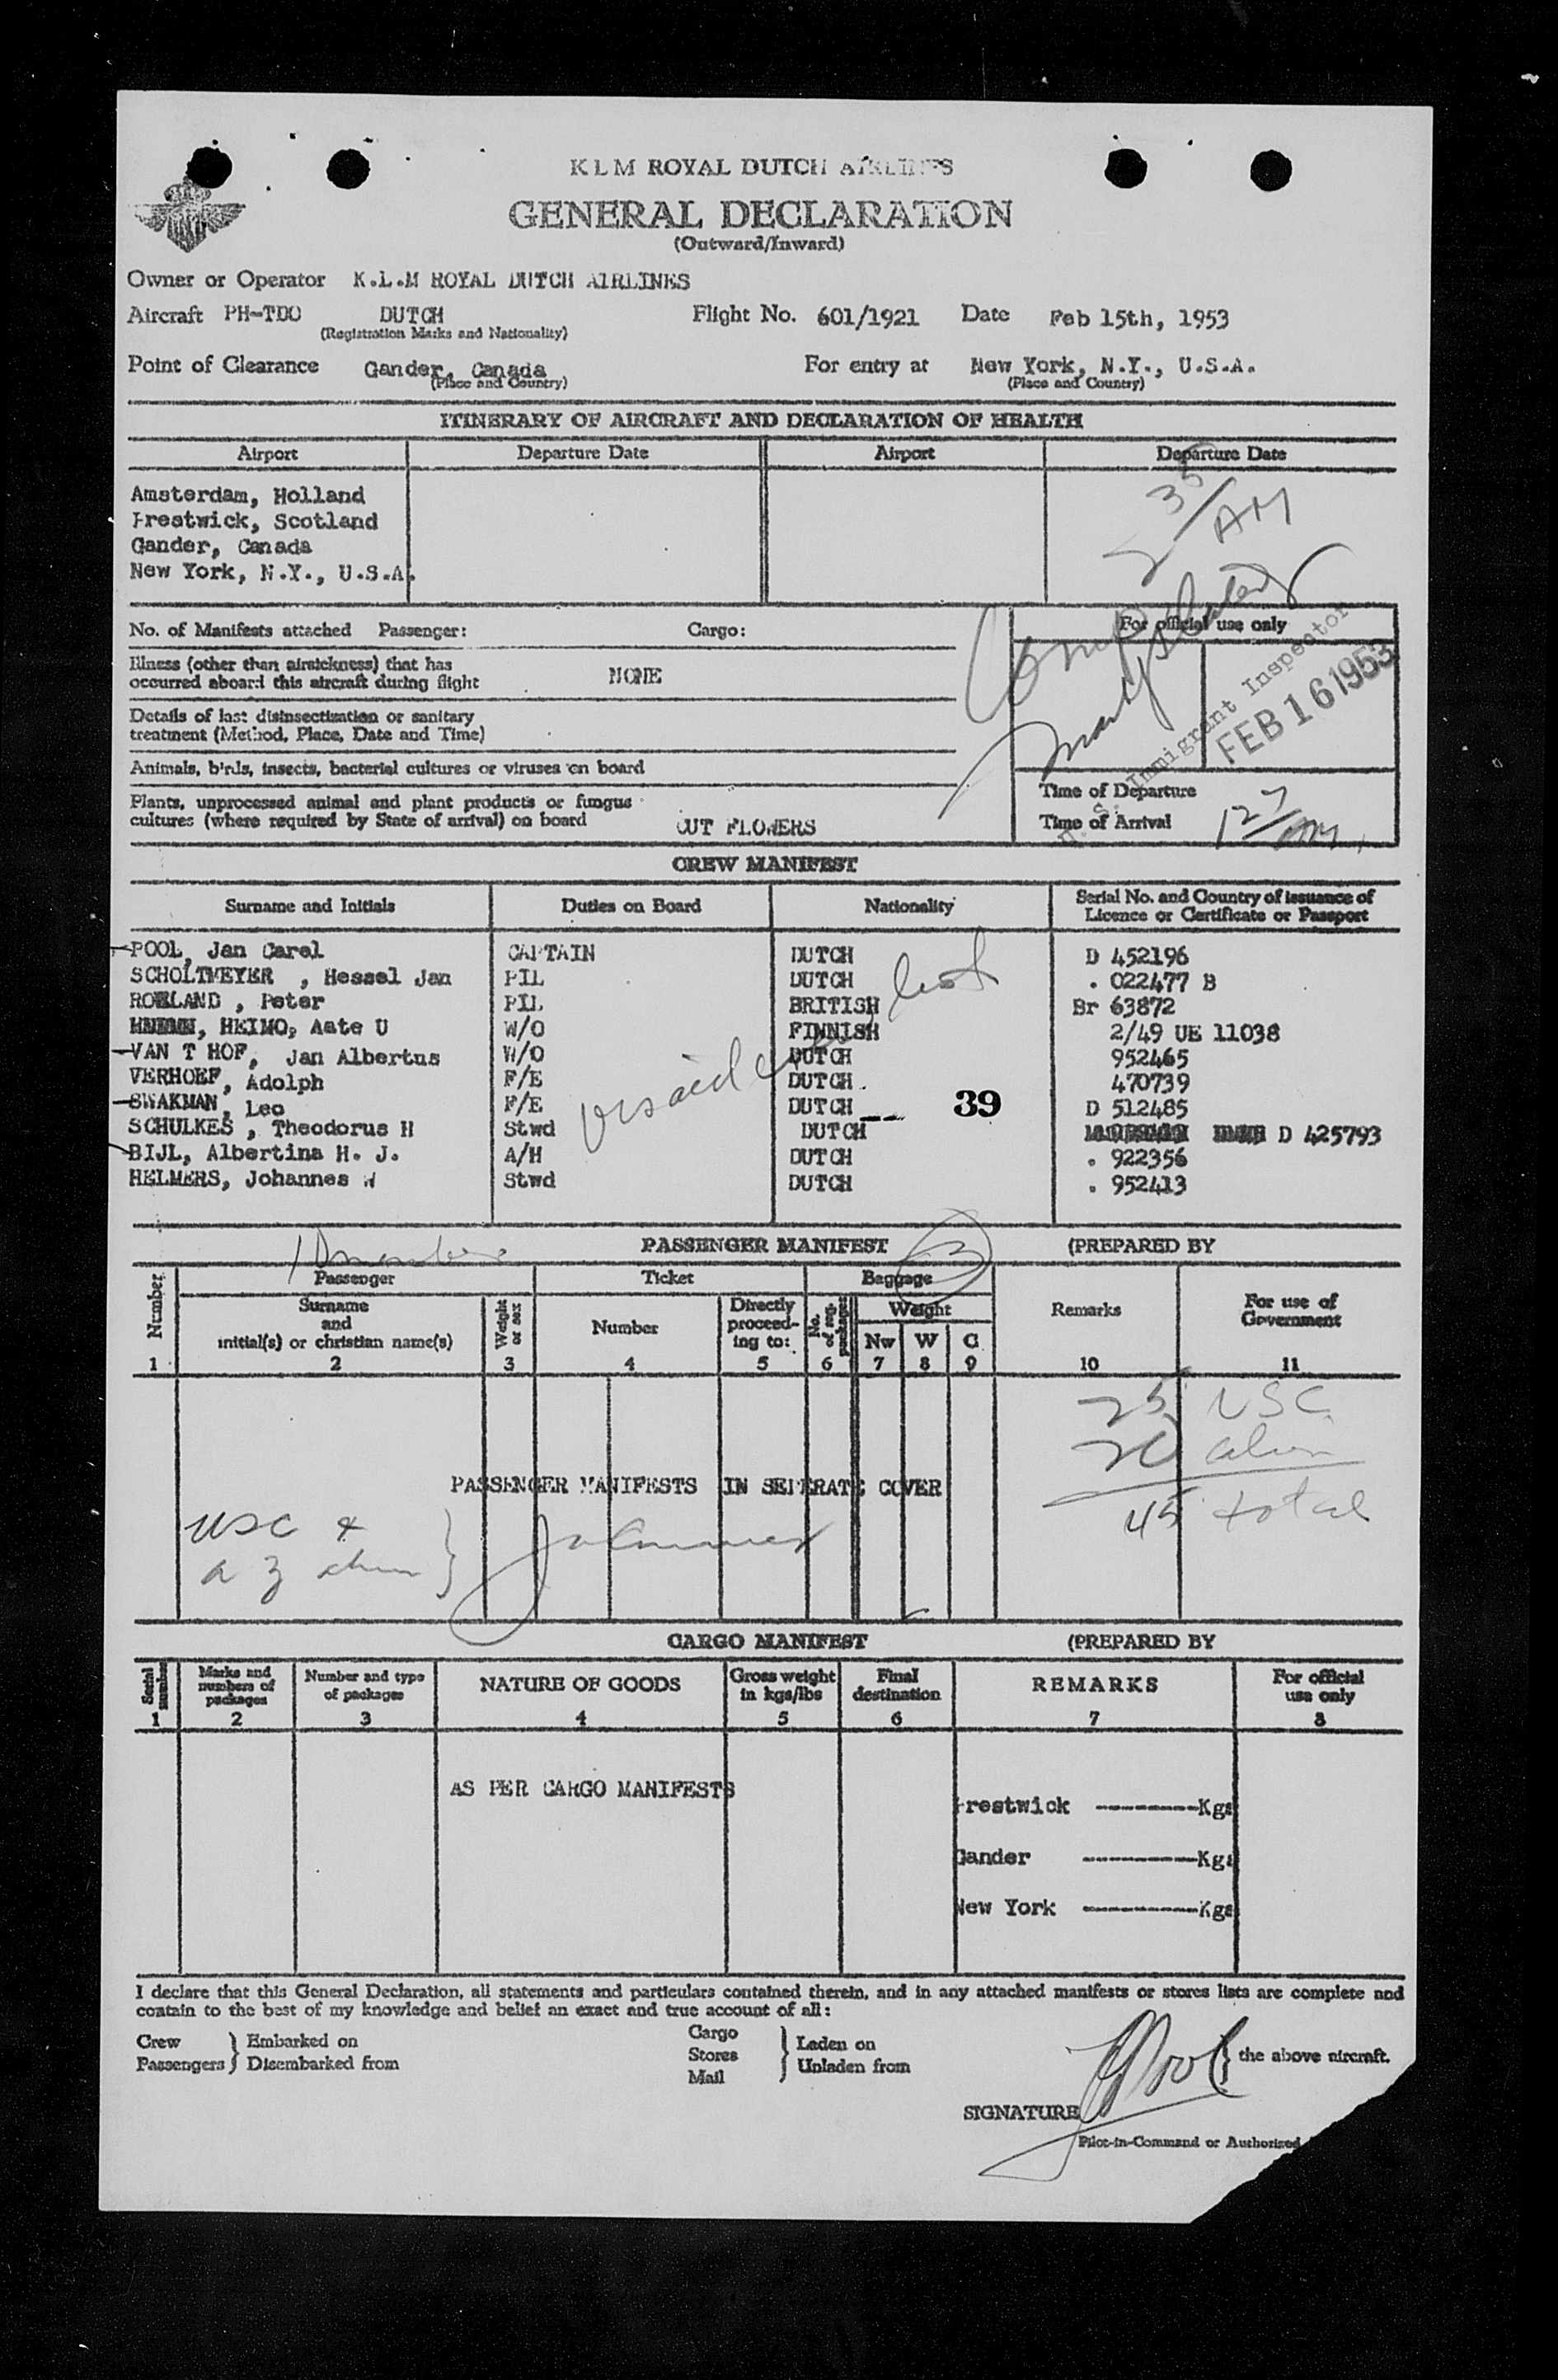 KLM ROYAL DUTCH AIRLINES
GENERAL DECLARATION
(Outward/Inward)
Owner or Operator K.L.M ROYAL DUTCH AIRLINES
Aircraft PH-TDO DUTCH Flight No. 601/1921 Date Feb 15th, 1953
(Registration Marks and Nationality)
Point of Clearance Gander, Canada For entry at New York, N.Y., U.S.A.
(Place and Country) (Place and Country)
ITINERARY OF AIRCRAFT AND DECLARATION OF HEALTH
Airport Departure Date Airport Departure Date
Amsterdam, Holland
Prestwick, Scotland
Gander, Canada
New York, N.Y., U.S.A.
35
AM
No. of Manifests attached Passenger: Cargo:
For official use only
Illness (other than airsickness) that has
occurred aboard this aircraft during flight NONE
Details of last disinsectization or sanitary
treatment (Method, Place, Date and Time)
Immigrant Inspector
FEB 16 1953
Animals, birds, insects, bacterial cultures or viruses on board
Plants, unprocessed animal and plant products or fungus
cultures (where required by State of arrival) on board CUT FLOWERS
Time of Departure
Time of Arrival
CREW MANIFEST
Surname and Initials Duties on Board Nationality Serial No. and Country of issuance of
Licence or Certificate or Passport
POOL, Jan Carel CAPTAIN DUTCH D 452196
SCHOLTMEYER , Hessel Jan PIL DUTCH . 022477 B
ROWLAND , Peter PIL BRITISH Br 63872
HEIMO, Aate U W/O FINNISH 2/49 UE 11038
VAN T HOF, Jan Albertus W/O DUTCH 952465
VERHOEF, Adolph F/E DUTCH . 470739
SWAKMAN, Leo F/E DUTCH D 512485
SCHULKES , Theodorus H Stwd DUTCH D 425793
BIJL, Albertina H. J. A/H DUTCH . 922356
HELMERS, Johannes W Stwd DUTCH . 952413
visaed crew list
39
PASSENGER MANIFEST (PREPARED BY
Number Passenger Ticket Baggage Remarks For use of
Government
Surname
and
initial(s) or christian name(s) Weight
or sex Number Directly
proceed-
ing to: No.
of reg.
packages Weight
Nw W C
1 2 3 4 5 6 7 8 9 10 11
25 USC
20 alien
45 total
PASSENGER MANIFESTS IN SEPERATE COVER
USC &
CARGO MANIFEST (PREPARED BY
Serial
number Marks and
numbers of
packages Number and type
of packages NATURE OF GOODS Gross weight
in kgs/lbs Final
destination REMARKS For official
use only
1 2 3 4 5 6 7 8
AS PER CARGO MANIFESTS
Prestwick ----------Kgs
Gander ----------Kgs
New York ----------Kgs
I declare that this General Declaration, all statements and particulars contained therein, and in any attached manifests or stores lists are complete and
contain to the best of my knowledge and belief an exact and true account of all:
Crew
Passengers } Embarked on
Disembarked from
Cargo
Stores
Mail } Laden on
Unladen from } the above aircraft.
SIGNATURE JPool
Pilot-in-Command or Authorized